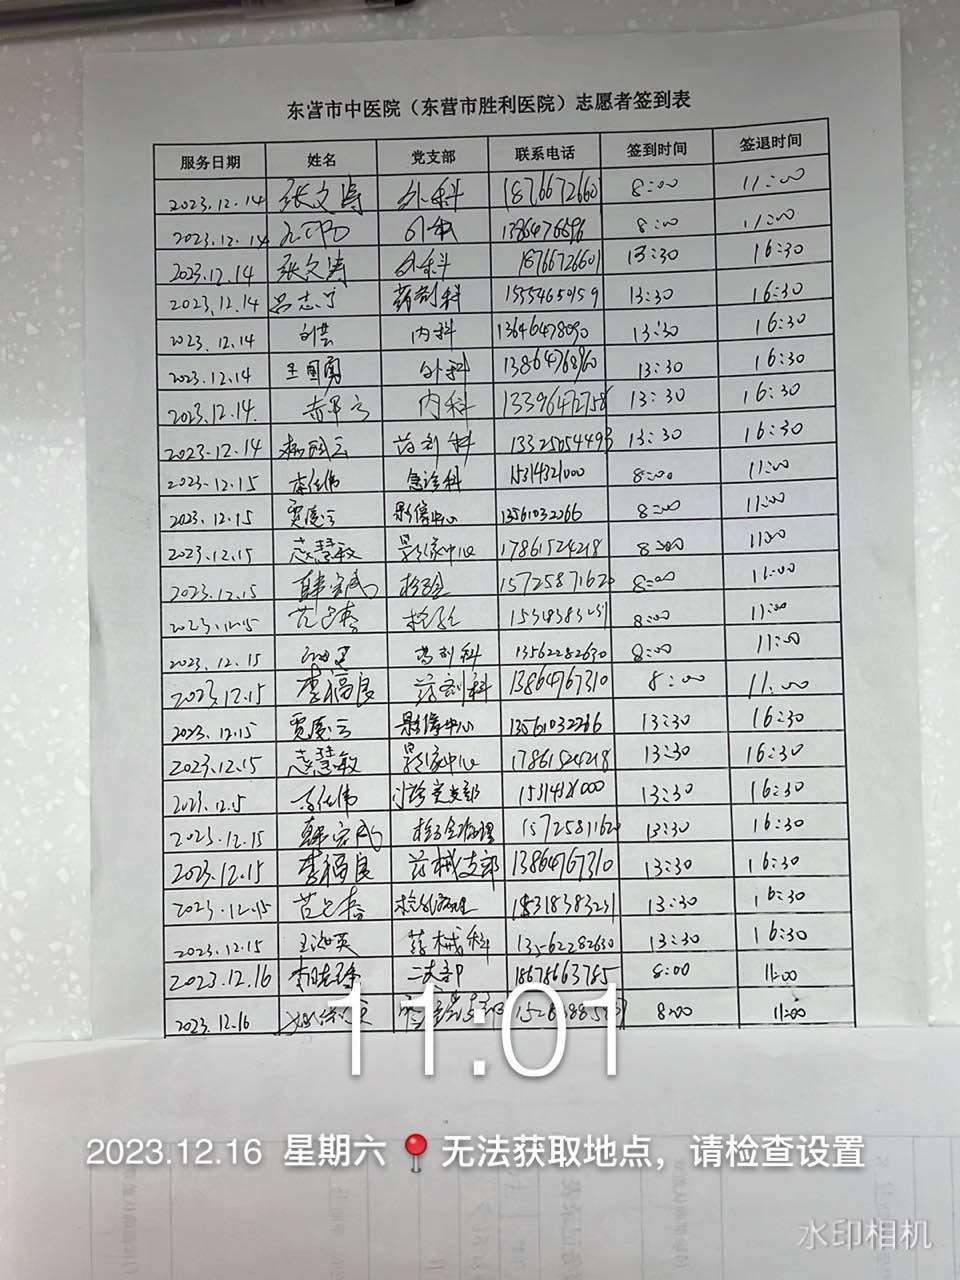 东营市中医院（东营市胜利医院）志愿者签到表
服务日期 姓名 党支部 联系电话 签到时间 签退时间
2023.12.14 张文涛 外科 18766726601 8:00 11:00
2023.12.14 8:00 11:00
2023.12.14 张文涛 外科 18766726601 13:30 16:30
2023.12.14 吕志宁 药剂科 15554650159 13:30 16:30
2023.12.14 内科 13646478090 13:30 16:30
2023.12.14 王国勇 外科 13864768960 13:30 16:30
2023.12.14. 内科 13396472758 13:30 16:30
2023.12.14 药剂科 13325054493 13:30 16:30
2023.12.15 急诊科 15314321000 8:00 11:00
2023.12.15 贾庆云 影像中心 13561032266 8:00 11:00
2023.12.15 慧敏 影像中心 17861524218 8:00 11:00
2023.12.15 韩宗武 检验 8:00 11:00
2023.12.15 检验 15318383231 8:00 11:00
2023.12.15 药剂科 13562282630 8:00 11:00
2023.12.15 李福良 药剂科 13864767310 8:00 11:00
2023.12.15 贾庆云 影像中心 13561032266 13:30 16:30
2023.12.15 慧敏 影像中心 17861524218 13:30 16:30
2023.12.15 党支部 13:30 16:30
2023.12.15 韩宗武 检验病理 13:30 16:30
2023.12.15 李福良 药械支部 13864767310 13:30 16:30
2023.12.15 检验病理 15318383231 13:30 16:30
2023.12.15 王淑英 药械科 13562282630 13:30 16:30
2023.12.16 二支部 18678663785 8:00 11:00
2023.12.16 8:00 11:00
11:01
2023.12.16 星期六 无法获取地点，请检查设置
水印相机